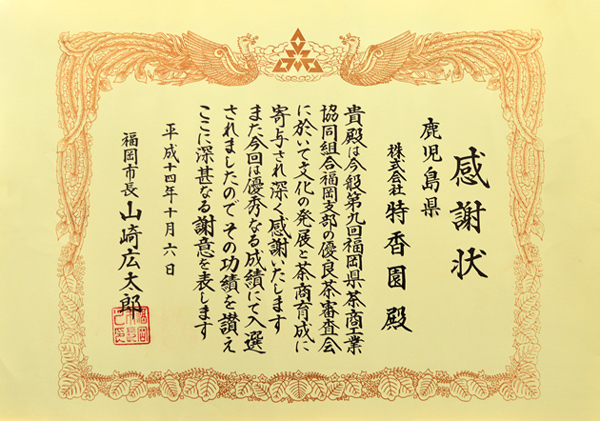 感謝状
鹿児島県
株式会社 特香園 殿
貴殿は今般第九回福岡県茶商工業
協同組合福岡支部の優良茶審査会
に於いて文化の発展と茶商育成に
寄与され深く感謝いたします
また今回は優秀なる成績にて入選
されましたのでその功績を讃え
ここに深甚なる謝意を表します
平成十四年十月六日
福岡市長 山崎広太郎